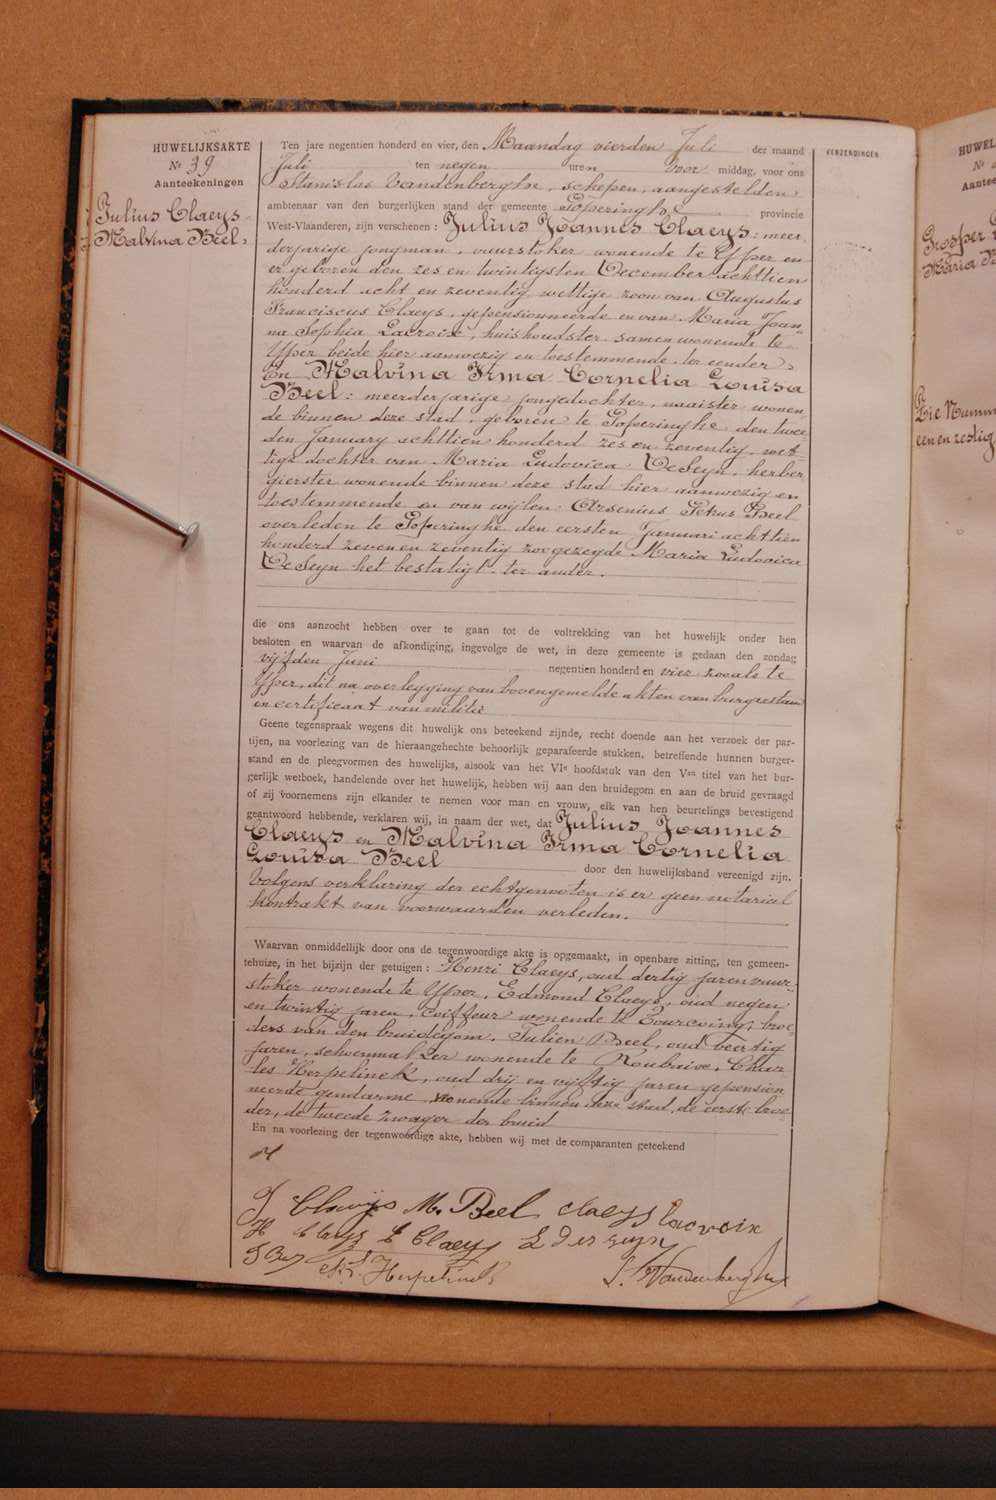 HUWELIJKSAKTE
Nr 39
Aanteekeningen
Julius Claeys
Malvina Beel
Ten jare negentien honderd en vier, den Maandag vierden Juli der maand
Juli ten negen uren voor middag, voor ons
Stanislas Vandenberghe, schepen, aangestelden
ambtenaar van den burgerlijken stand der gemeente Poperinghe provincie
West-Vlaanderen, zijn verschenen : Julius Joannes Claeys : meer-
derjarige jongman, vuurstoker wonende te Ypper en
er geboren den zes en twintigsten December achttien
honderd acht en zeventig, wettige zoon van Augustus
Franciscus Claeys, gepensionneerde en van Maria Joan-
na Sophia Lacroix, huishoudster samen wonende te
Ypper beide hier aanwezig en toestemmende ter eender,
En Malvina Irma Cornelia Louisa
Beel : meerderjarige jongedochter, naaister wonen-
de binnen deze stad, geboren te Poperinghe den twee-
den January achttien honderd zes en zeventig, wet-
tige dochter van Maria Ludovica DeSeyn, herber-
gierster wonende binnen deze stad hier aanwezig en
toestemmende en van wijlen Arsenius Petrus Beel
overleden te Poperinghe den eersten Januari achttien
honderd zeven en zeventig zoogezeyde Maria Ludovica
DeSeyn het bestatigt ter ander.
die ons aanzocht hebben over te gaan tot de voltrekking van het huwelijk onder hen
besloten en waarvan de afkondiging, ingevolge de wet, in deze gemeente is gedaan den zondag
vijfden Juni negentien honderd en vier zooals te
Yper, dit na overlegging van bovengemelde akten van burgerstand
en certificaat van militie
Geene tegenspraak wegens dit huwelijk ons beteekend zijnde, recht doende aan het verzoek der par-
tijen, na voorlezing van de hieraangehechte behoorlijk geparafeerde stukken, betreffende hunnen burger-
stand en de pleegvormen des huwelijks, alsook van het VIe hoofdstuk van den Ven titel van het bur-
gerlijk wetboek, handelende over het huwelijk, hebben wij aan den bruidegom en aan de bruid gevraagd
of zij voornemens zijn elkander te nemen voor man en vrouw, elk van hen beurtelings bevestigend
geantwoord hebbende, verklaren wij, in naam der wet, dat Julius Joannes
Claeys en Malvina Irma Cornelia
Louisa Beel door den huwelijksband vereenigd zijn.
Volgens verklaring der echtgenooten is er geen notarieel
kontrakt van voorwaarden verleden.
Waarvan onmiddellijk door ons de tegenwoordige akte is opgemaakt, in openbare zitting, ten gemeen-
tehuize, in het bijzijn der getuigen : Henri Claeys, oud dertig jaren vuur-
stoker wonende te Ypper, Edmond Claeys, oud negen
en twintig jaren, coiffeur wonende te Tourcoing, broe-
ders van den bruidegom. Julien Beel, oud veertig
jaren, schoenmaker wonende te Roubaix, Char-
les Herpelinck, oud drij en vijftig jaren gepension-
neerde gendarme wonende binnen deze stad, de eerste broe-
der, de tweede zwager der bruid
En na voorlezing der tegenwoordige akte, hebben wij met de comparanten geteekend
J Claeys M. Beel Claeys Lacroix
H Claeys E Claeys L Deseyn
J Beel Herpelinck S. Vandenberghe
VERZENDINGEN
HUWEL
Aantee
Prosper
Maria
Zie Numm
een en zestig